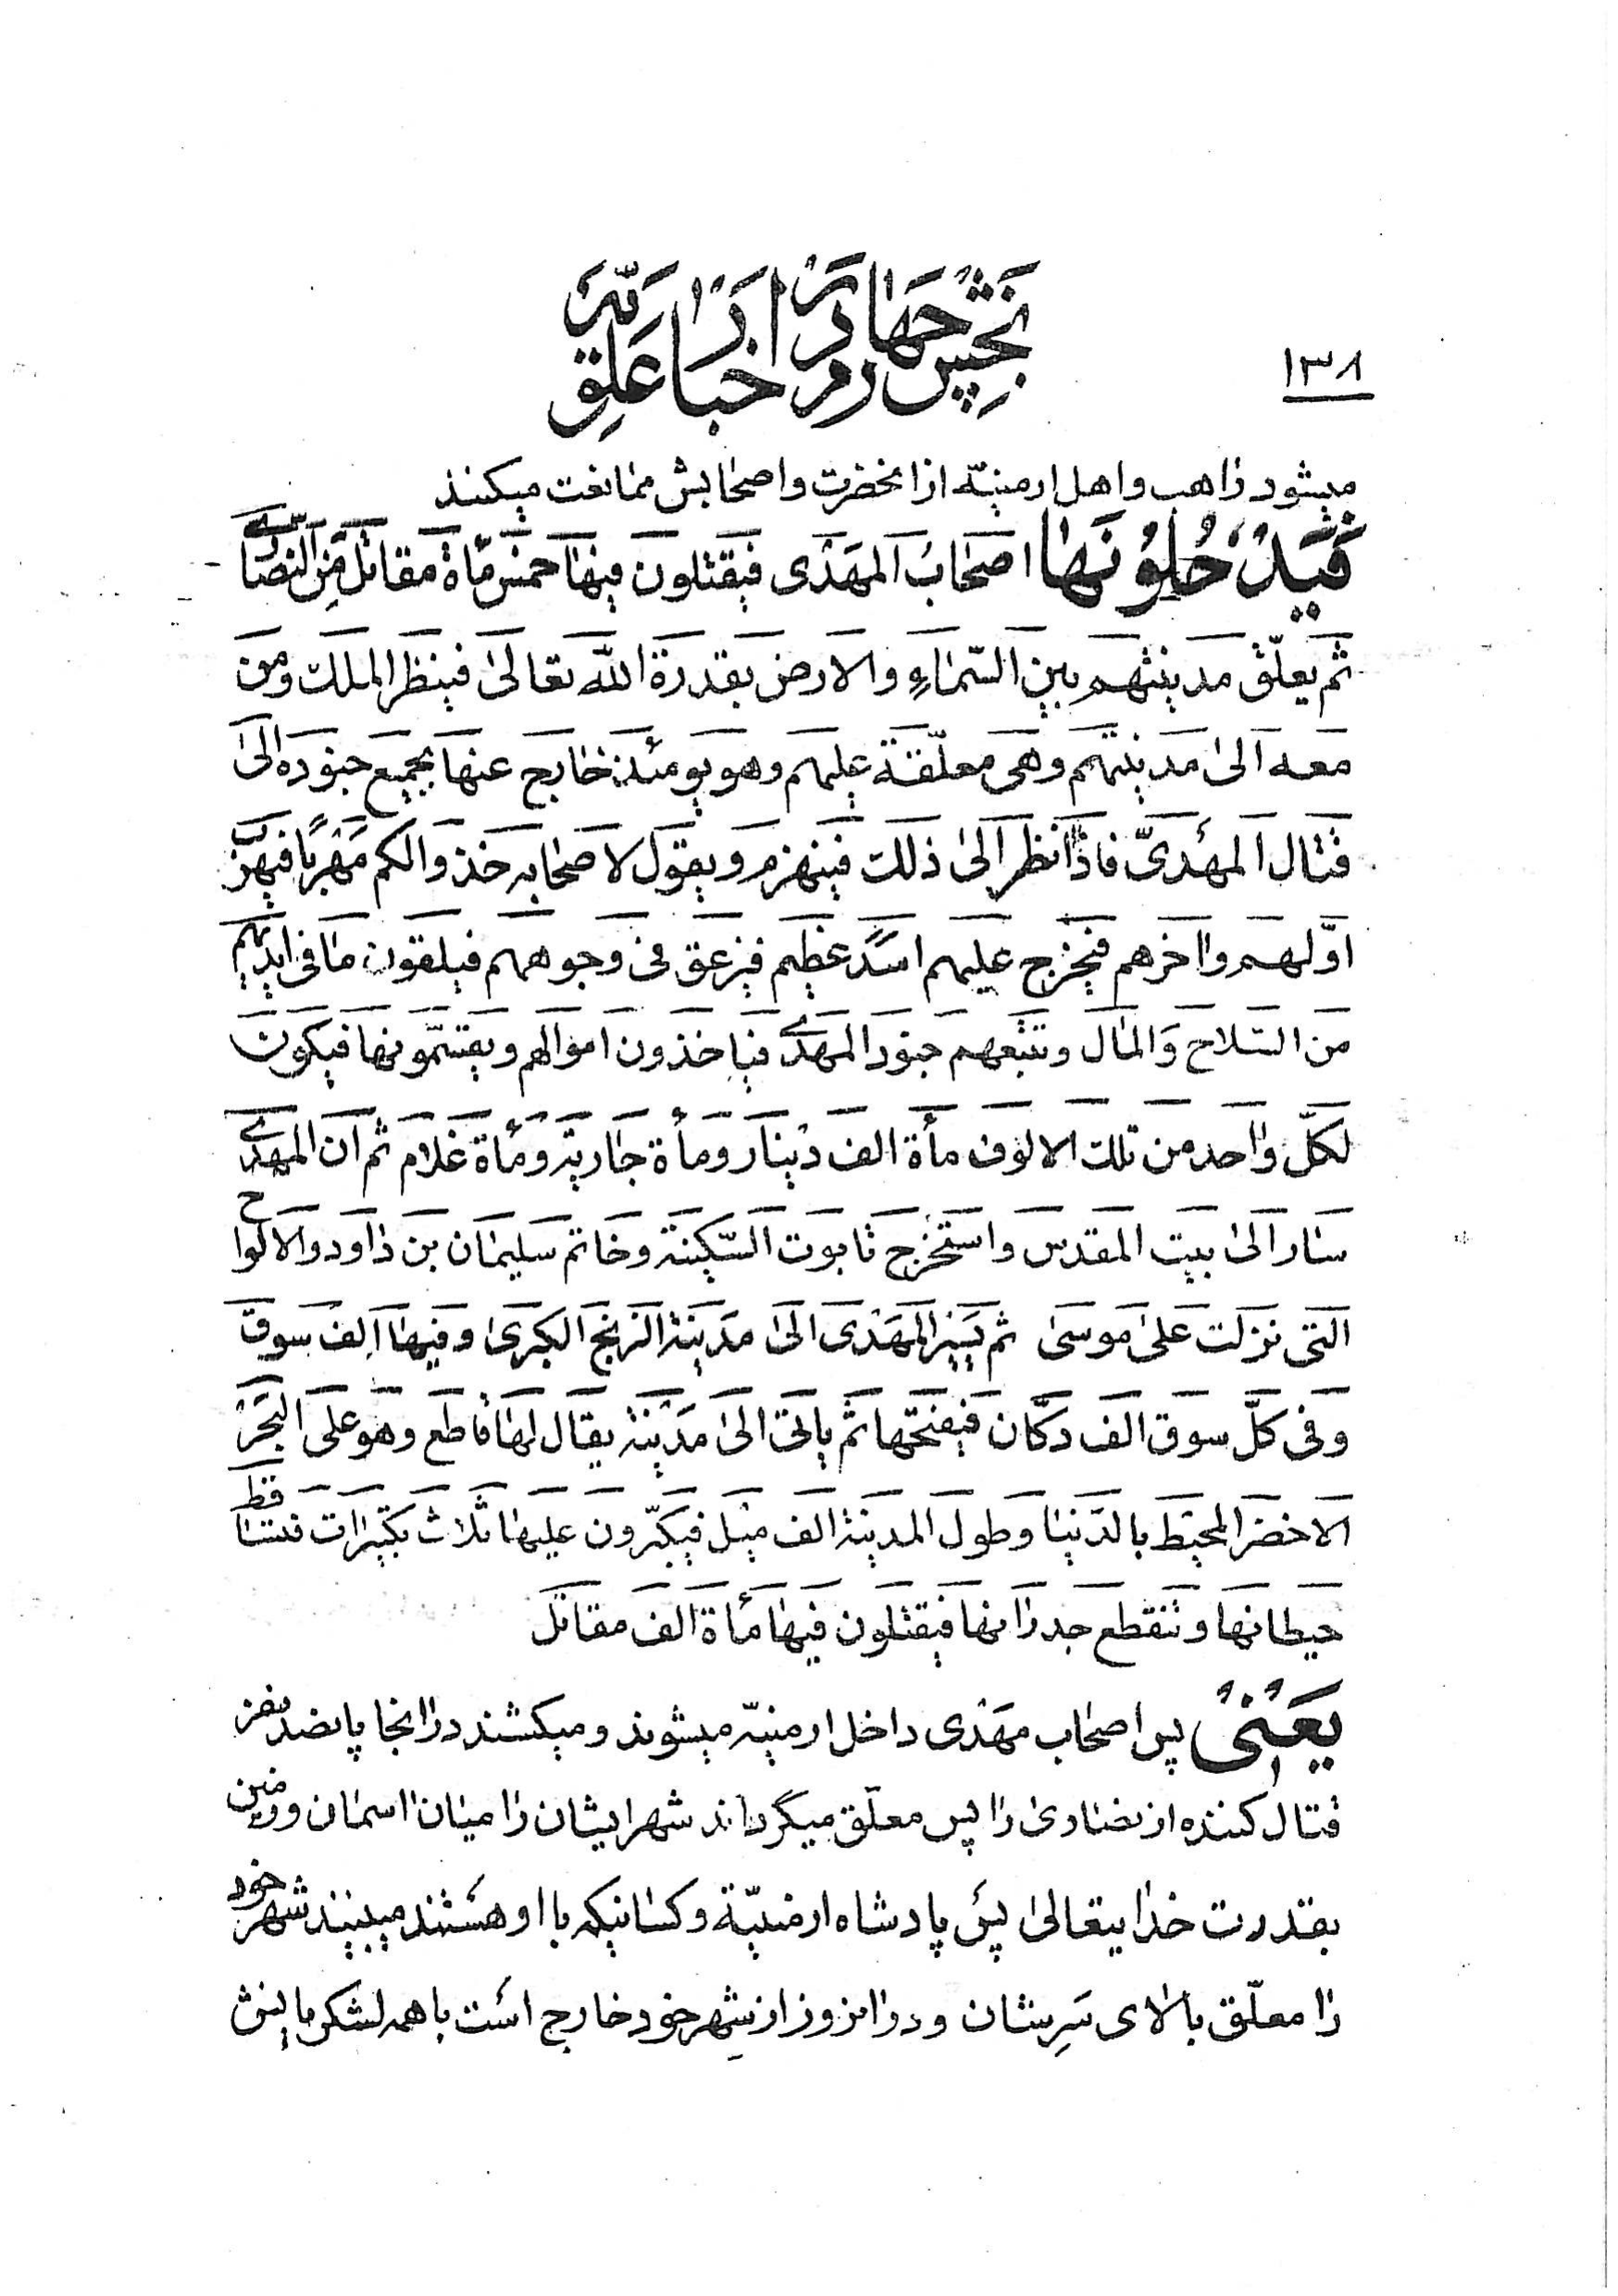 بخش چهارم در اخبار علویّه
۱۳۸
میشود راهب و اهل ارمنیّه از انحضرت و اصحابش ممانعت میکنند
فَیَدْخُلُوُنَها اصحابُ المهَدْی فیقتلون فیها خمس مأة مقاتل مِن النصاری
ثم یعلّق مدینتهم بین السّماءِ و الارض بقدرة اللّه تعالی فینظر الملک و من
معه الی مدینتهم و هی معلّقة علیهم و هو یومئذ خارج عنها بجمیع جنوده الی
قتال المهدیّ فاذا نظر الی ذلک فینهزم و یقول لاصحابه خذوا لکم مَهْرباً فیهرب
اوّلهم و اخرهم فیخرج علیهم اسدٌ عظیم فیزعق فی وجوههم فیلقون ما فی ایدیهم
من السّلاح و المال و تتبعهم جنود المهدی فیاخذون اموالهم و یقتسمّونها فیکون
لکلّ واحد من تلک الالوف مأة الف دینار و مأة جاریة و مأة غلام ثم ان المهدی
سار الی بیت المقدس و استخرج تابوت السّکینة و خاتم سلیمان بن داود و الالواح
التی نزلت علی موسی ثم یسیر المهدی الی مدینة الزنج الکبری و فیها الف سوق
و فی کلّ سوق الف دکّان فیفتحها ثم یاتی الی مدینة یقال لها قاطع و هو علی البحر
الاخضر المحیط بالدّنیا و طول المدینة الف میل فیکبّرون علیها ثلاث تکبیرات فتتساقط
حیطانها و تنقطع جدرانها فیقتلون فیها مأة الف مقاتل
یَعْنیُ پس اصحاب مهدی داخل ارمنیّه میشوند و میکشند در انجا پانصد نفر
قتال کننده از نصاری را پس معلّق میگرداند شهر ایشان را میان اسمان و زمین
بقدرت خدایتعالی پس پادشاه ارمنیّة و کسانیکه با او هستند میبینند شهر خود
را معلّق بالای سَرِشان و در انروز از شهر خود خارج است با همه لشکرهایش